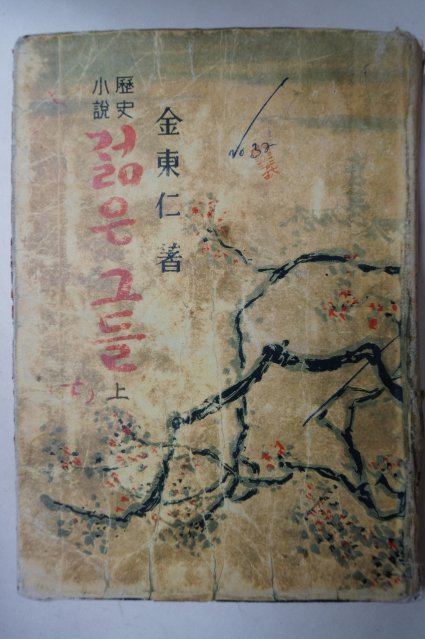 歷史
小說
젊은 그들
上
金東仁 著
no 32